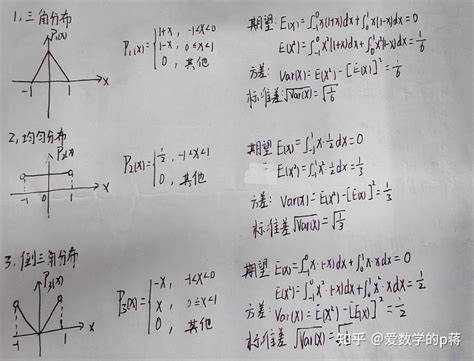 1、三角分布
P₁(x)
-1 1 x
P₁(x)={1+x, -1<x<0
1-x, 0≤x<1
0, 其他
期望: E(x)=∫₋₁⁰x(1+x)dx+∫₀¹x(1-x)dx=0
E(x²)=∫₋₁⁰x²(1+x)dx+∫₀¹x²(1-x)dx=1/6
方差: Var(x)=E(x²)-[E(x)]²=1/6
标准差√Var(x)=√1/6
2、均匀分布
P₂(x)
-1 1 x
P₂(x)={1/2, -1<x<1
0, 其他
期望: E(x)=∫₋₁¹x·1/2dx=0
E(x²)=∫₋₁¹x²·1/2dx=1/3
方差: Var(x)=E(x²)-[E(x)]²=1/3
标准差√Var(x)=√1/3
3、倒三角分布
P₃(x)
-1 1 x
P₃(x)={-x, -1<x<0
x, 0≤x<1
0, 其他
期望: E(x)=∫₋₁⁰x·(-x)dx+∫₀¹x·xdx=0
E(x²)=∫₋₁⁰x²·(-x)dx+∫₀¹x²·xdx=1/2
方差: Var(x)=E(x²)-[E(x)]²=1/2
标准差√Var(x)=√1/2
知乎 @爱数学的p蒋